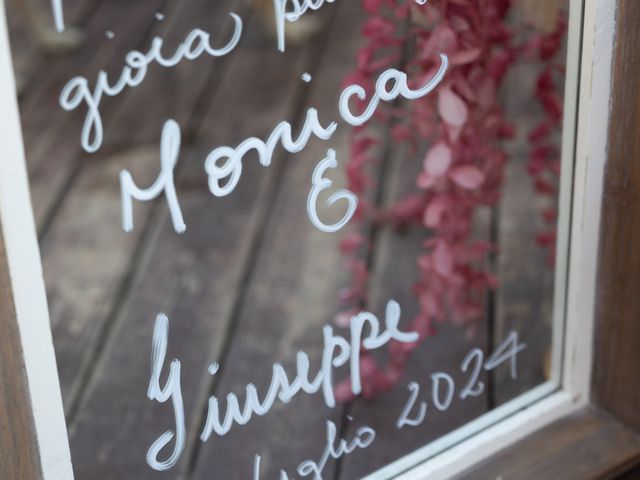 gioia
Monica
&
Giuseppe
luglio 2024